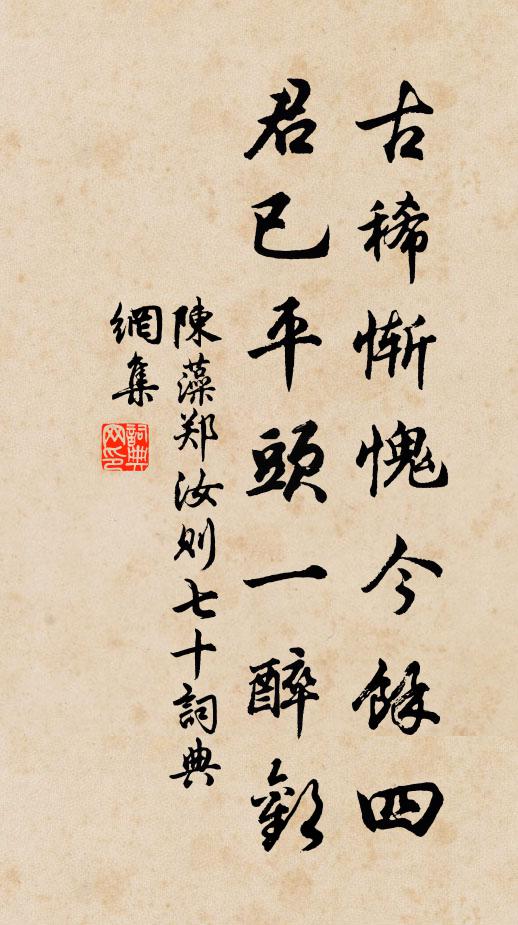 古稀慚愧今餘四
君已平頭一醉歡
陳藻郑汝则七十詞典
網集
詞典
网印